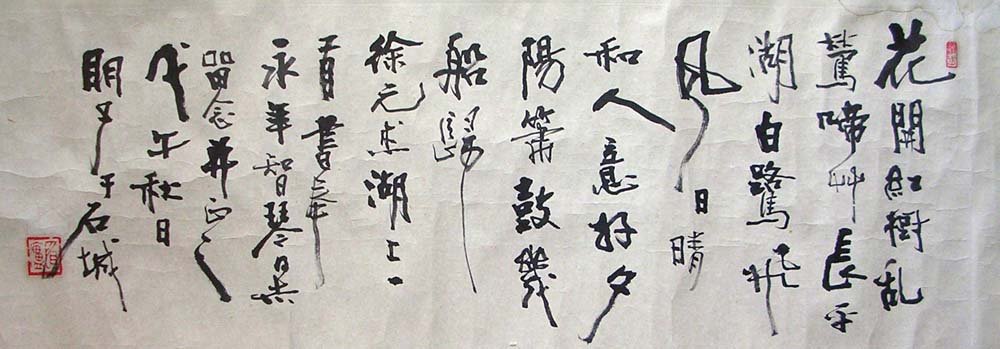 花開紅樹乱
鶯啼艸長平
湖白路鳥飛
風日晴
和人意好夕
陽箫鼓幾
船歸
徐元杰湖上一
首書奉
永年智琴
留念并正之
戊午秋日
明 于石城